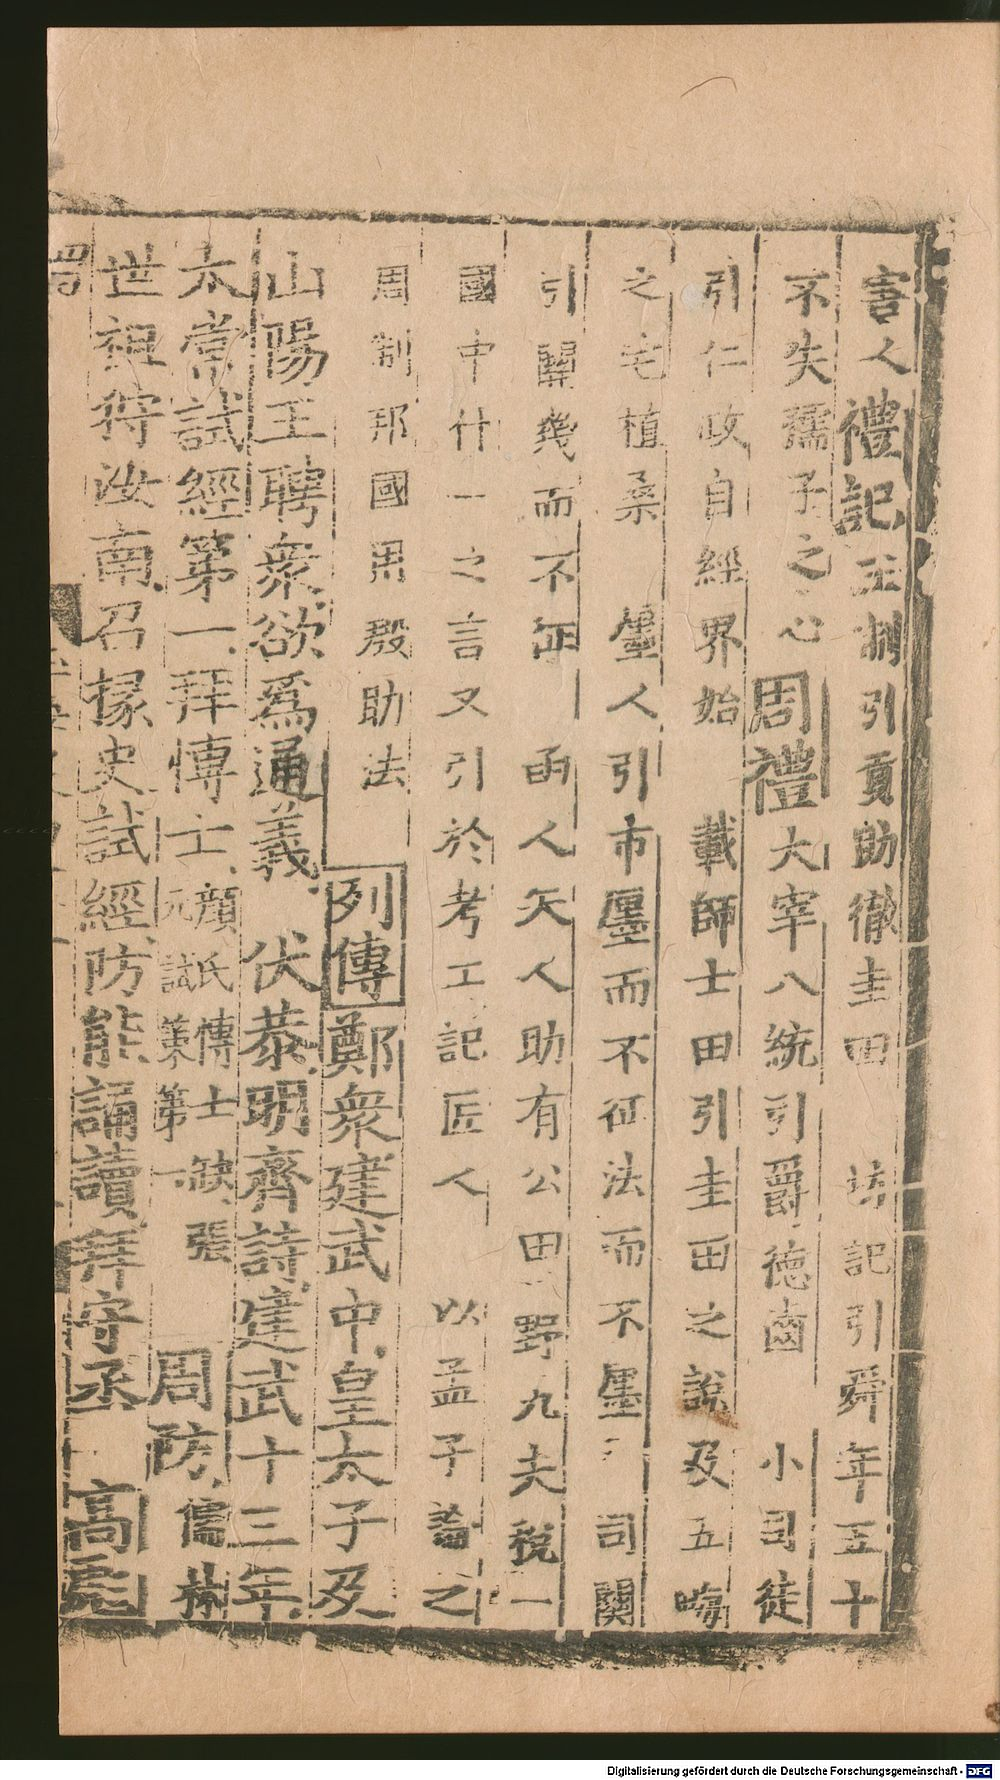 害人禮記王制引貢助徹圭田　坊記引舜年五十
不失孺子之心周禮大宰八統引爵德齒　小司徒
引仁政自經界始　載師士田引圭田之說及五畮
之宅植桑　廛人引市廛而不征法而不廛　司關
引關幾而不征　函人矢人助有公田　野九夫稅一
國中什一之言又引於考工記匠人　以孟子論之
周制邦國用殷助法
列傳鄭衆建武中皇太子及
山陽王聘衆欲爲通義　伏恭明齊詩建武十三年
太常試經第一拜博士顏氏博士缺張
元試策第一
周防儒林
世祖狩汝南召掾史試經防能誦讀拜守丞　高彪
Digitalisierung gefördert durch die Deutsche Forschungsgemeinschaft - DFG